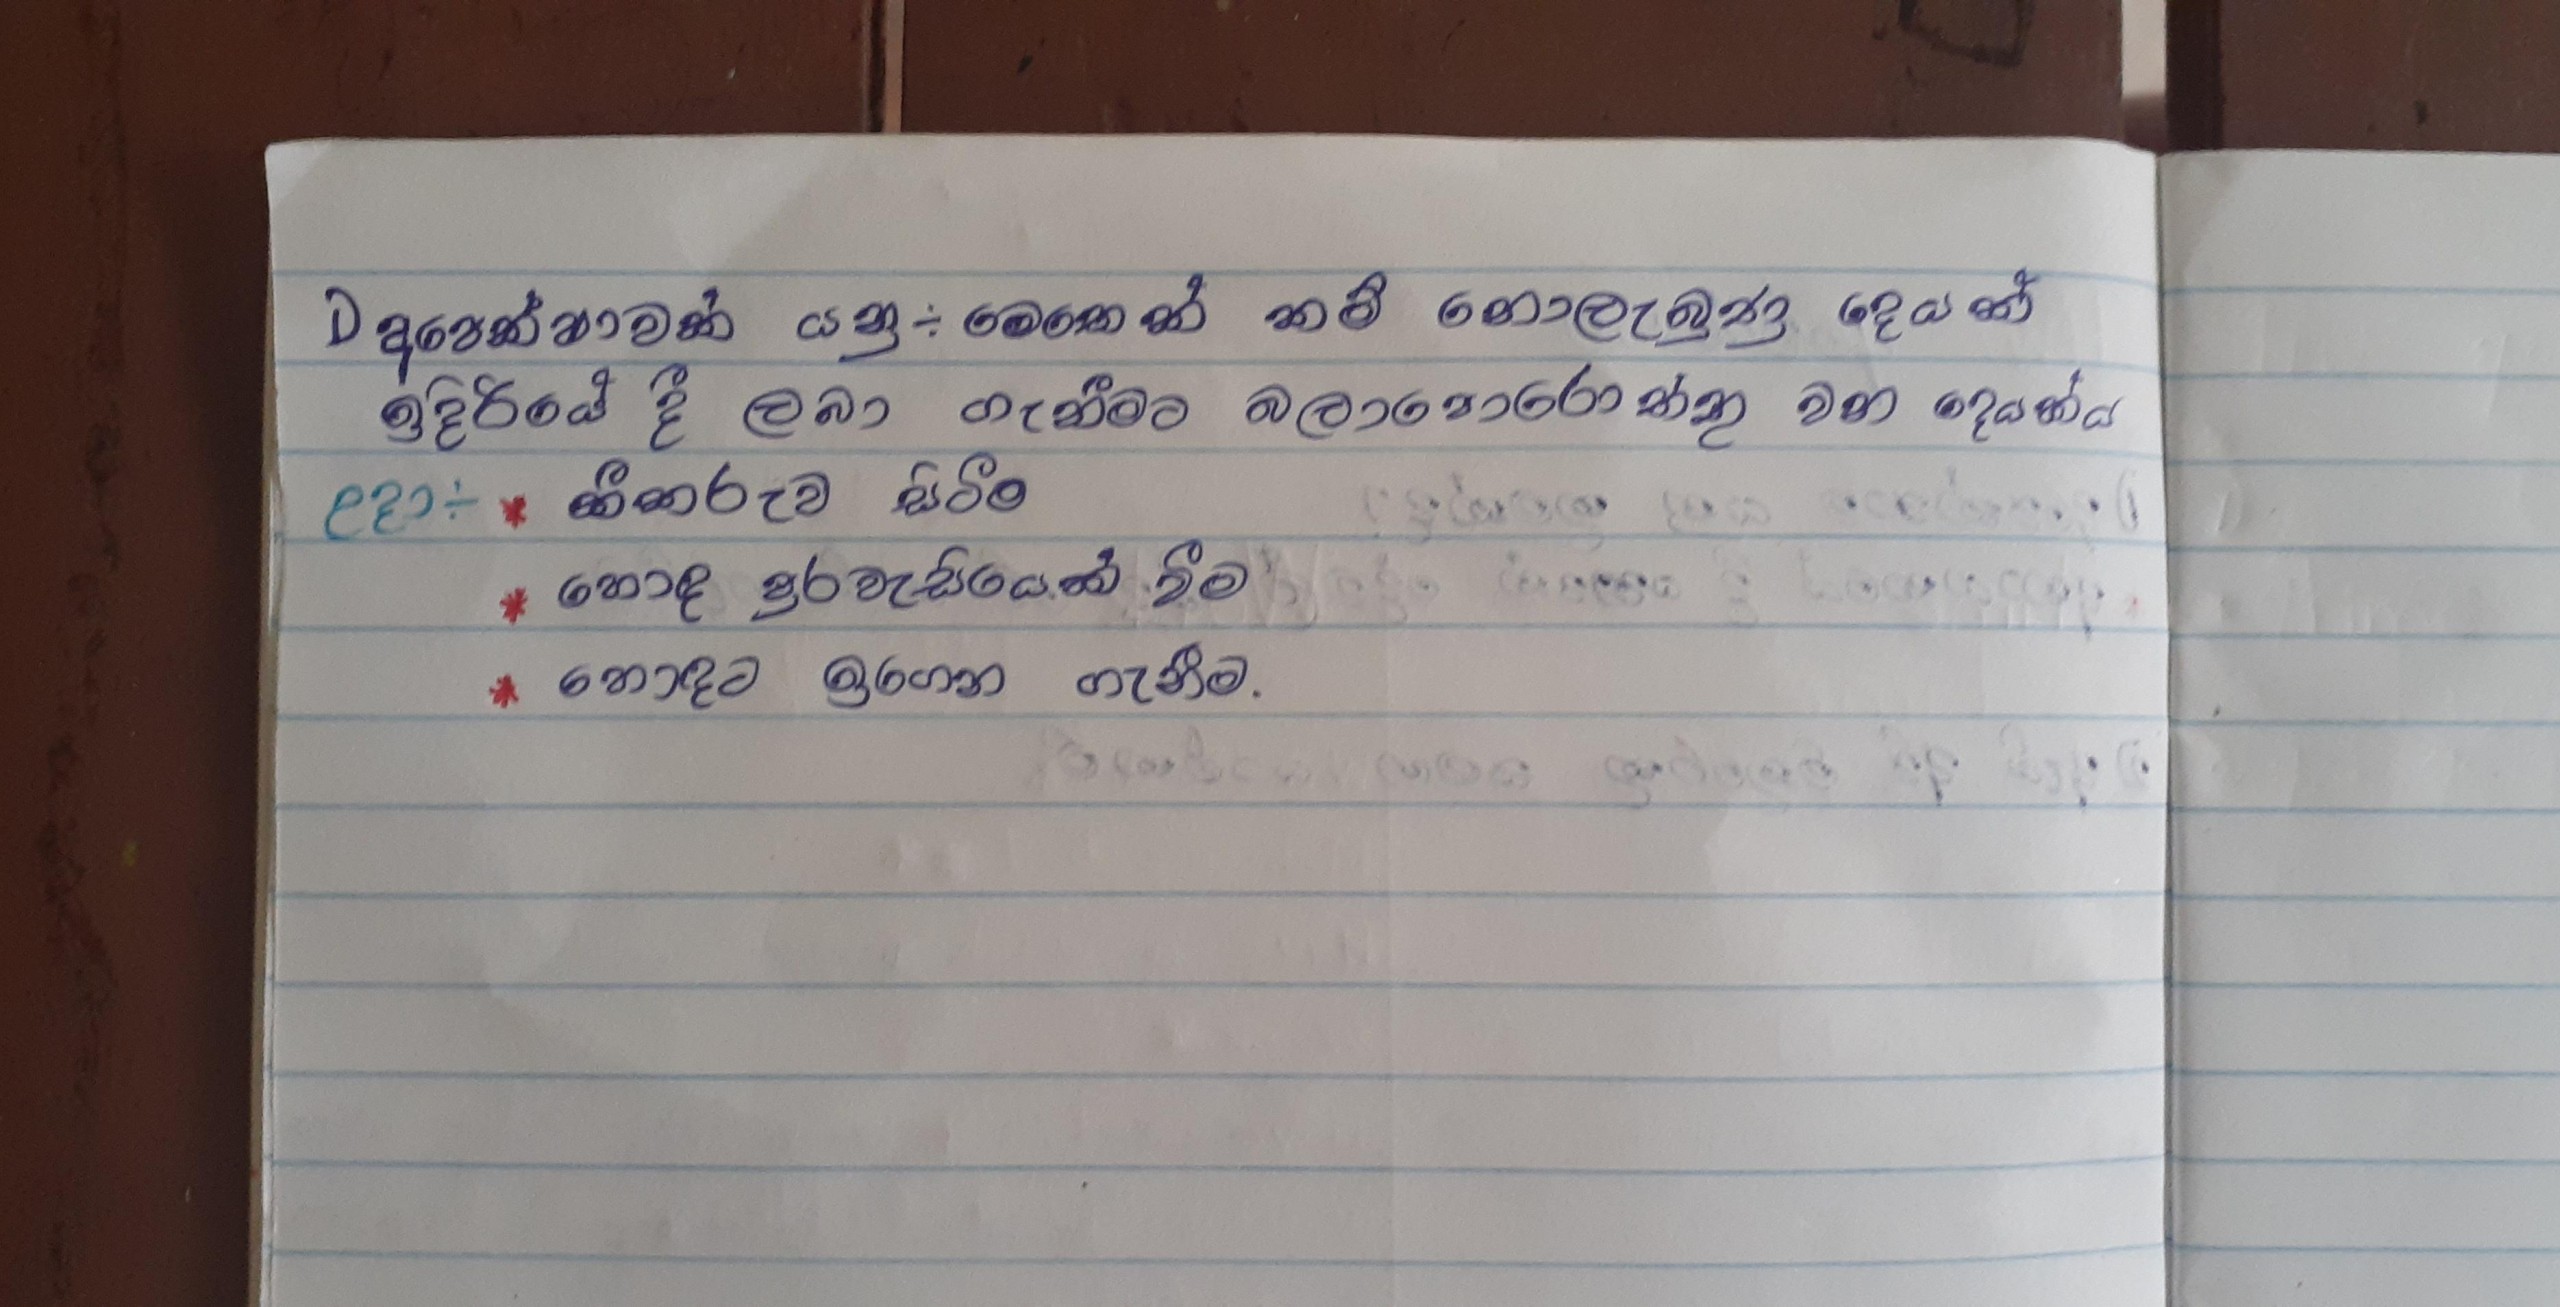 1) අපෙක්ෂාවක් යනු÷ මෙතෙක් තම් නොලැබුණු දෙයක්
ඉදිරියේ දී ලබා ගැනීමට බලාපොරොත්තු වන දෙයක්ය
උදා÷ * නීතරුව සිටීම
* හොඳ පුරවැසියෙක් වීම
* හොඳට ඉගෙන ගැනීම.